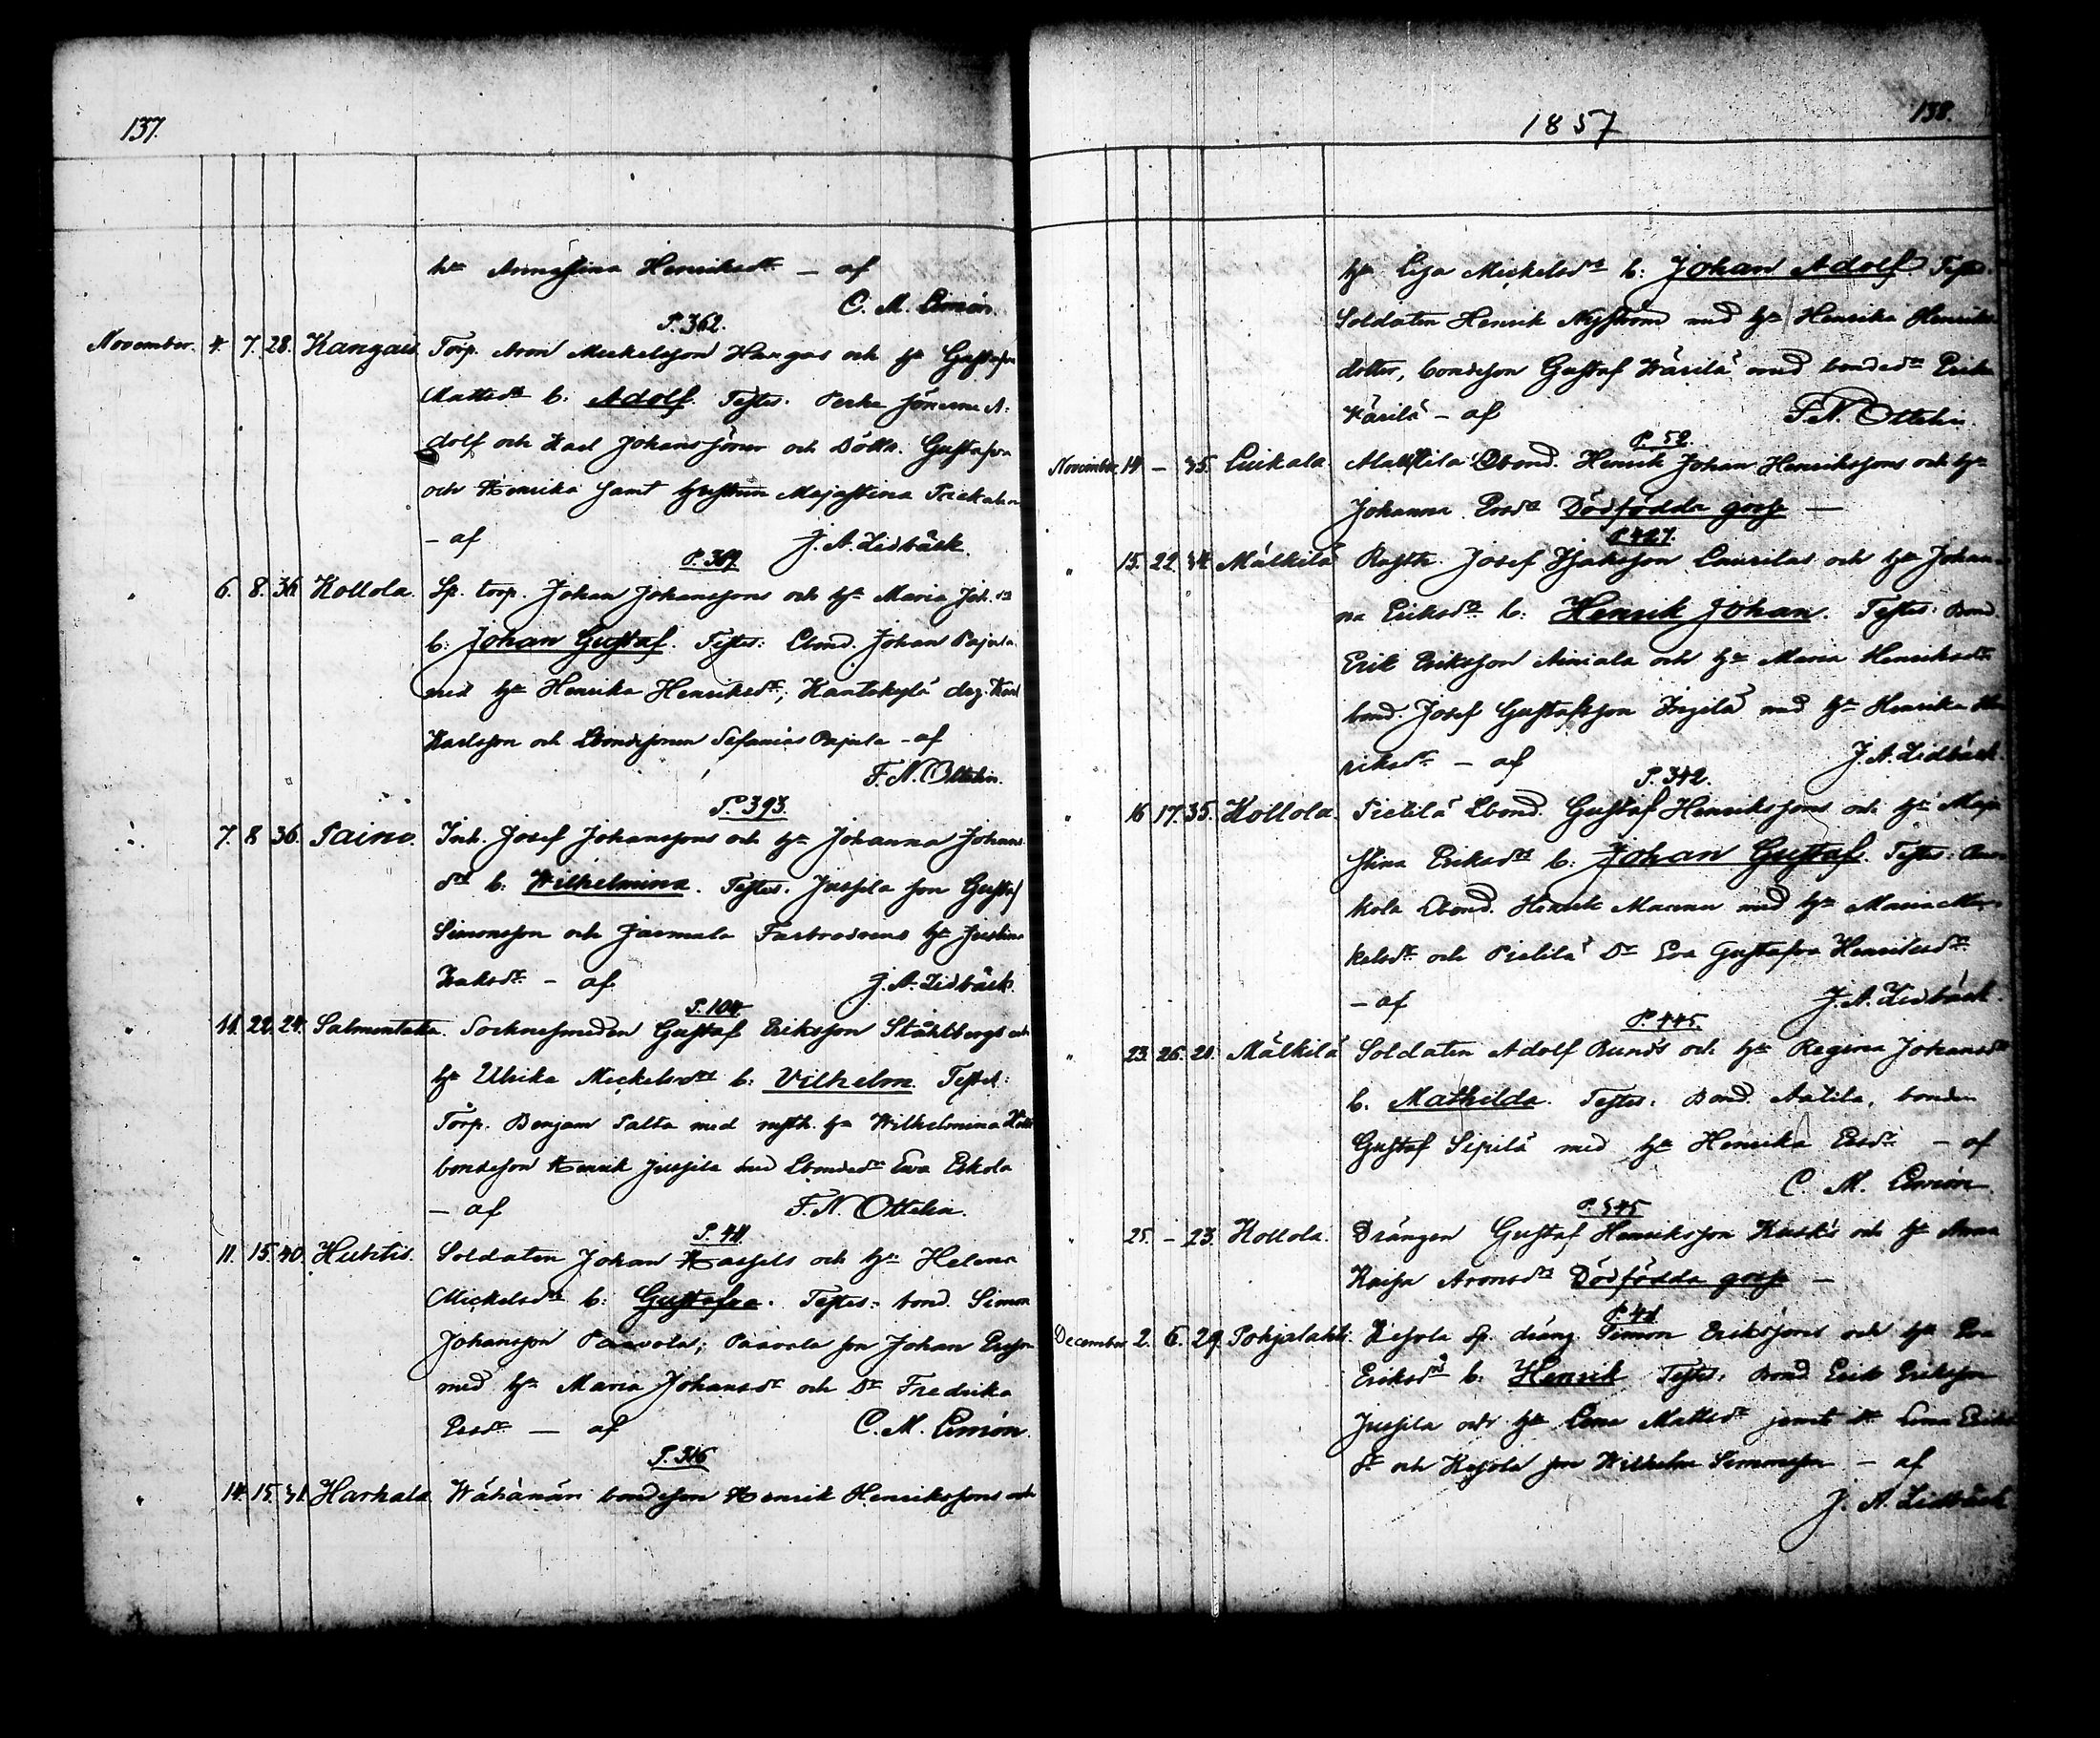 137.
hu Annastina Henriksdr — af
C. M. Limón.
P. 362.
November. 4. 7. 28. Kangais. Torp. Aron Mickelsson Kangas och hu Gustafva
Mattsdr b: Adolf. Testes: Perho sönerne A-
dolf och Karl Johanssöner och Döttr. Gustafva
och Henrika samt hustrun Majastina
— af J. A. Lidbäck.
P. 369.
" 6. 8. 36. Kollola. Sp. torp. Johan Johanssons och hu Maria Joh.dr
b: Johan Gustaf. Testes: Lbond. Johan Pajula
med hu Henrika Henriksdr; Kantokylä drg. Karl
Karlsson och Lbondesonen Sefanias Pajula — af
F. N. Ottelin.
P. 393.
" 7. 8. 36. Paino. Inh. Josef Johanssons och hu Johanna Johans
dr b: Wilhelmina. Testes: Jussila son Gustaf
Simonsson och Jarmala Farbrodrens hu Justina
Isaksdr — af J. A. Lidbäck.
P. 104.
" 11. 22. 24. Salmentaka. Socknesmeden Gustaf Eriksson Ståhlbergs och
hu Ulrika Mickelsdr b: Vilhelm. Testes:
Torp. Benjam Palta med rusth. hu Wilhelmina
bondeson Henrik Jussila med Lbondedr Eva Eskola
— af F. N. Ottelin.
P. 41
" 11. 15. 40. Huhtis. Soldaten Johan Hassels och hu Helena
Mickelsdr b: Gustafva. Testes: bond. Simon
Johansson Paavola; Paavola son Johan Ersson
med hu Maria Johansdr och Dr Fredrika
Ersdr — af C. M. Limón.
P. 316
" 14. 15. 31. Harhala Wähänän bondeson Henrik Henrikssons och
1857
138.
hu Lisa Mickelsdr b: Johan Adolf. Testes:
Soldaten Henrik Nyström med hu Henrika Henriks
dotter, bondeson Gustaf Wärilä med bondedr Erika
Wärilä — af F. N. Ottelin.
P. 52.
November. 14 — 35. Luikala. Mattila Lbond. Henrik Johan Henrikssons och hu
Johanna Ersdr Dödfödda gosse —
P. 427.
" 15. 22. 34. Mälkilä Rusth. Josef Isaksson Laurilas och hu Johan-
na Eriksdr b: Henrik Johan. Testes: Bond.
Erik Eriksson Anniala och hu Maria Henriksdr
bond. Josef Gustafsson Yrjilä med hu Henrika Hen
riksdr — af J. A. Lidbäck.
P. 342.
" 16. 17. 35. Kollola. Pietilä Lbond. Gustaf Henrikssons och hu Maja
Stina Eriksdr b: Johan Gustaf. Testes:
kola Lbond. Henrik Mannu med hu Maria Mic-
kelsdr och Pietilä Dr Eva Gustafva Henriksdr
— af J. A. Lidbäck.
P. 445.
" 23. 26. 21. Mälkilä Soldaten Adolf Runds och hu Regina Johansdr
b. Mathilda. Testes: Bond. Aatila, bonden
Gustaf Sipilä med hu Henrika Ersdr — af
C. M. Limón
P. 345
" 25. — 23. Kollola. Drängen Gustaf Henriksson Kuskis och hu Anna
Kaisa Aronsdr Dödfödda gosse —
P. 41
December 2. 6. 29. Pohjalahti. Kejola Sp. dräng Simon Erikssons och hu Eva
Eriksdr b: Henrik Testes: Bond Erik Eriksson
Jussila och hu Lena Mattsdr jemte dr Lena Eriks
dr och Kejola son Wilhelm Simonsson — af
J. A. Lidbäck